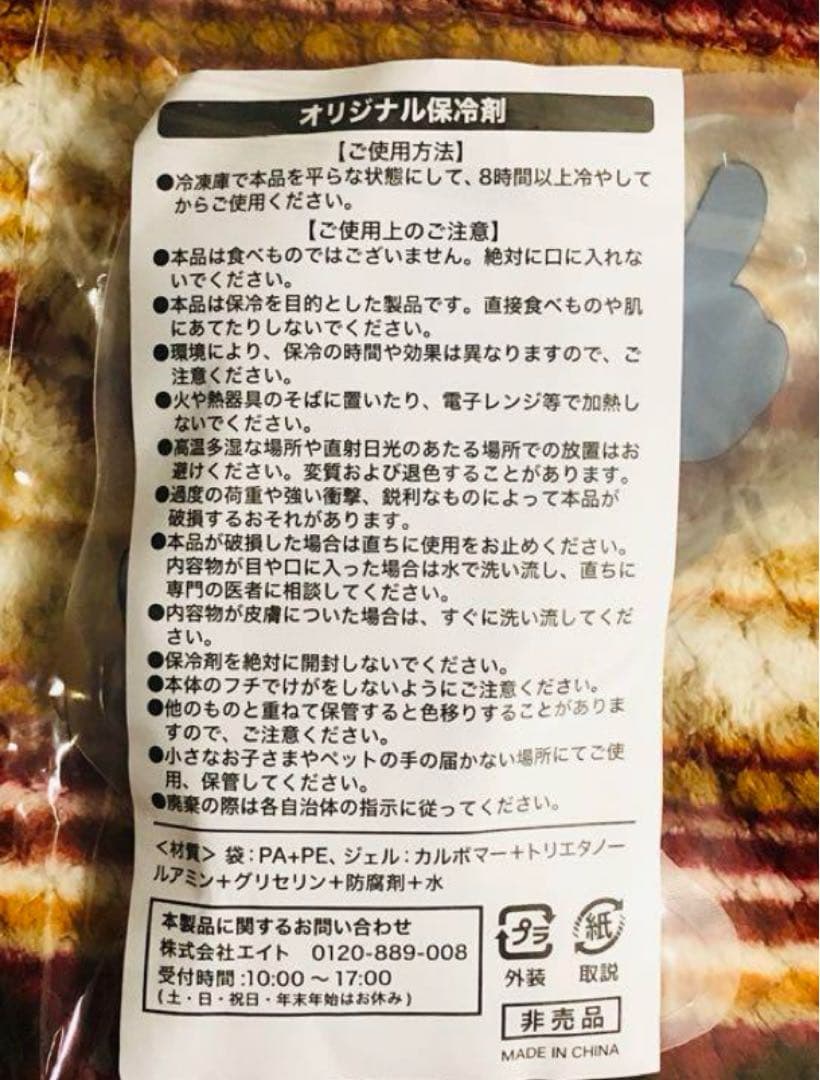 オリジナル保冷剤
【ご使用方法】
●冷凍庫で本品を平らな状態にして、8時間以上冷やして
からご使用ください。
【ご使用上のご注意】
●本品は食べものではございません。絶対に口に入れな
いでください。
●本品は保冷を目的とした製品です。直接食べものや肌
にあてたりしないでください。
●環境により、保冷の時間や効果は異なりますので、ご
注意ください。
●火や熱器具のそばに置いたり、電子レンジ等で加熱し
ないでください。
●高温多湿な場所や直射日光のあたる場所での放置はお
避けください。変質および退色することがあります。
●過度の荷重や強い衝撃、鋭利なものによって本品が
破損するおそれがあります。
●本品が破損した場合は直ちに使用をお止めください。
内容物が目や口に入った場合は水で洗い流し、直ちに
専門の医者に相談してください。
●内容物が皮膚についた場合は、すぐに洗い流してくだ
さい。
●保冷剤を絶対に開封しないでください。
●本体のフチでけがをしないようにご注意ください。
●他のものと重ねて保管すると色移りすることがありま
すので、ご注意ください。
●小さなお子さまやペットの手の届かない場所にてご使
用、保管してください。
●廃棄の際は各自治体の指示に従ってください。
＜材質＞ 袋：PA+PE、ジェル：カルボマー＋トリエタノー
ルアミン＋グリセリン＋防腐剤＋水
本製品に関するお問い合わせ
株式会社エイト 0120-889-008
受付時間：10:00～17:00
(土・日・祝日・年末年始はお休み)
プラ 紙
外装 取説
非売品
MADE IN CHINA